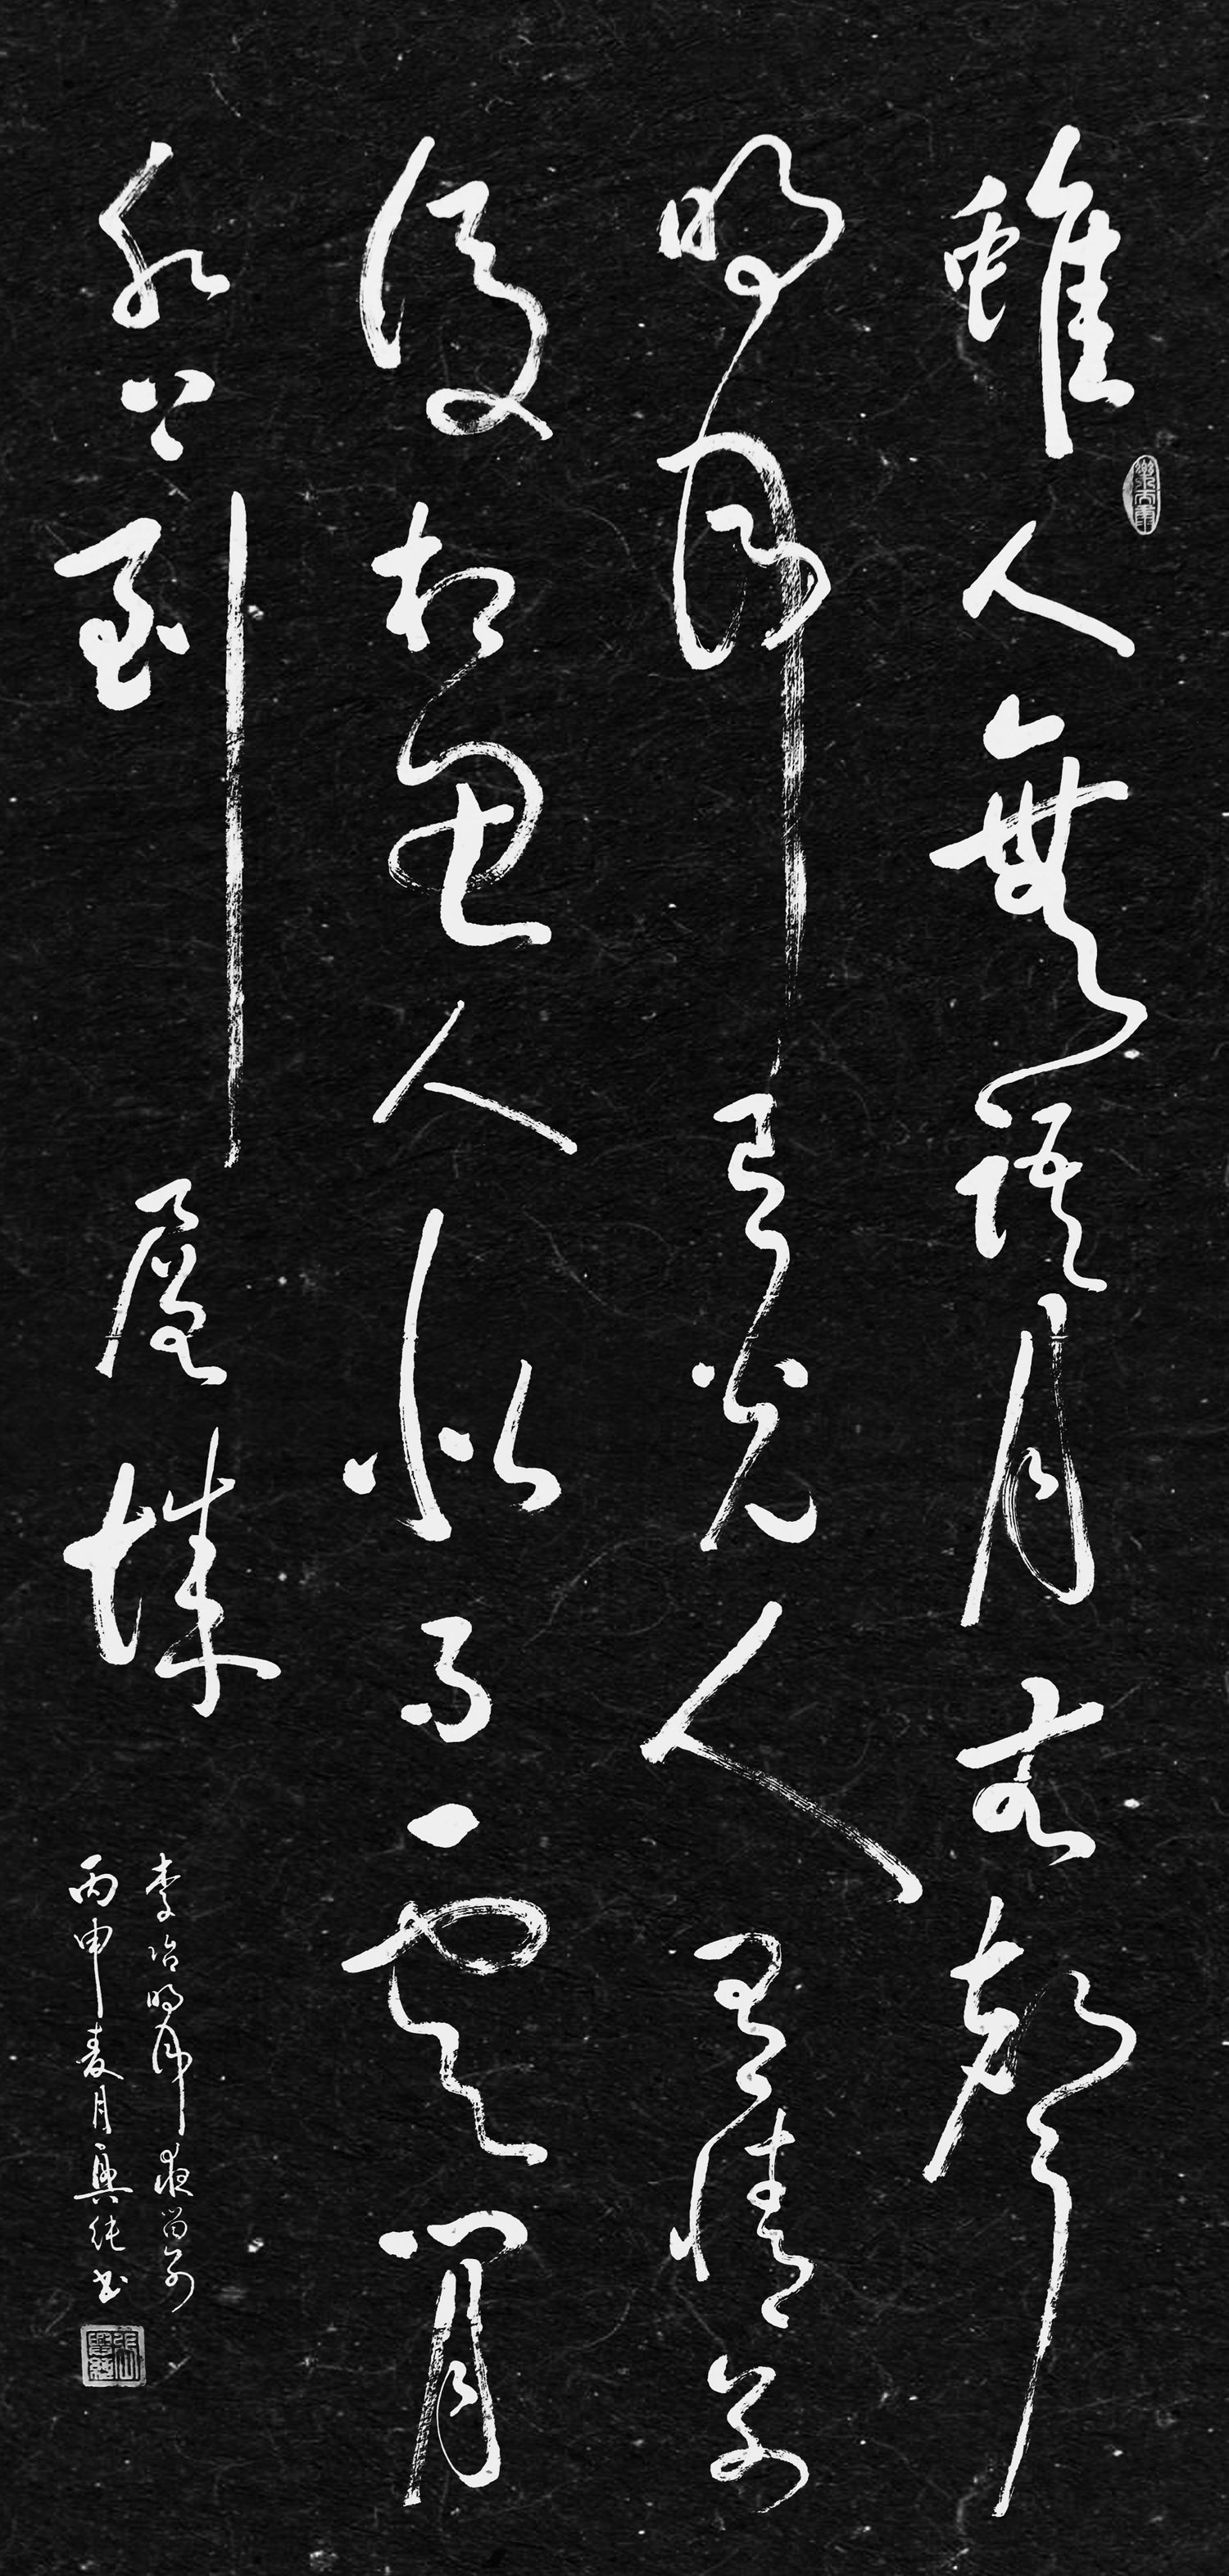 離人無語月無聲
明月有光人有情別
後相思人似月雲間
水上到層城
李冶明月夜留別
丙申麦月興純书